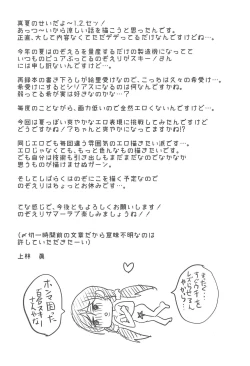 真夏のせいだよ～1.2.セッ！
あっつ～いから涼しい話を描こうと思ったんです。
正直、大して内容なくてただデデデってるだけなんですけどね…。
今年の夏はのぞえろを量産するだけの製造所になってて
いつものピュアぷっとるのぞえりがスキー！さん
には申し訳ないんですけど…。
再録本の書き下ろしが絵里受けなので、こっちは久々の希受け…。
希受けにするとシリアスになるのは何なんですかね。
弱ってる希が実は好きなのかな…？
毎度のことながら、画力低いので全然エロくないんですけど…。
今回は夏っぽい爽やかなエロ表現に挑戦してみたんですけど
どうですかね！？ちゃんと爽やかになってますかね！？
同じエロでも毎回違う雰囲気のエロ描きたい派です…。
エロじゃなくても、もっと色んなもの描きたいです。
でも自分は技術も引き出しもまだまだなのでなかなか
思うものが描けませぬガーン。
そしてしばらくはのぞにこを描く予定なので
のぞえりはちょっとお休みです…。
てな感じで、今後ともよろしくお願いします！
のぞえりサマーラブ楽しみましょうね！！
（〆切一時間前の文章だから意味不明なのは
許していただきたーい）
上林 眞
ホンマ困った